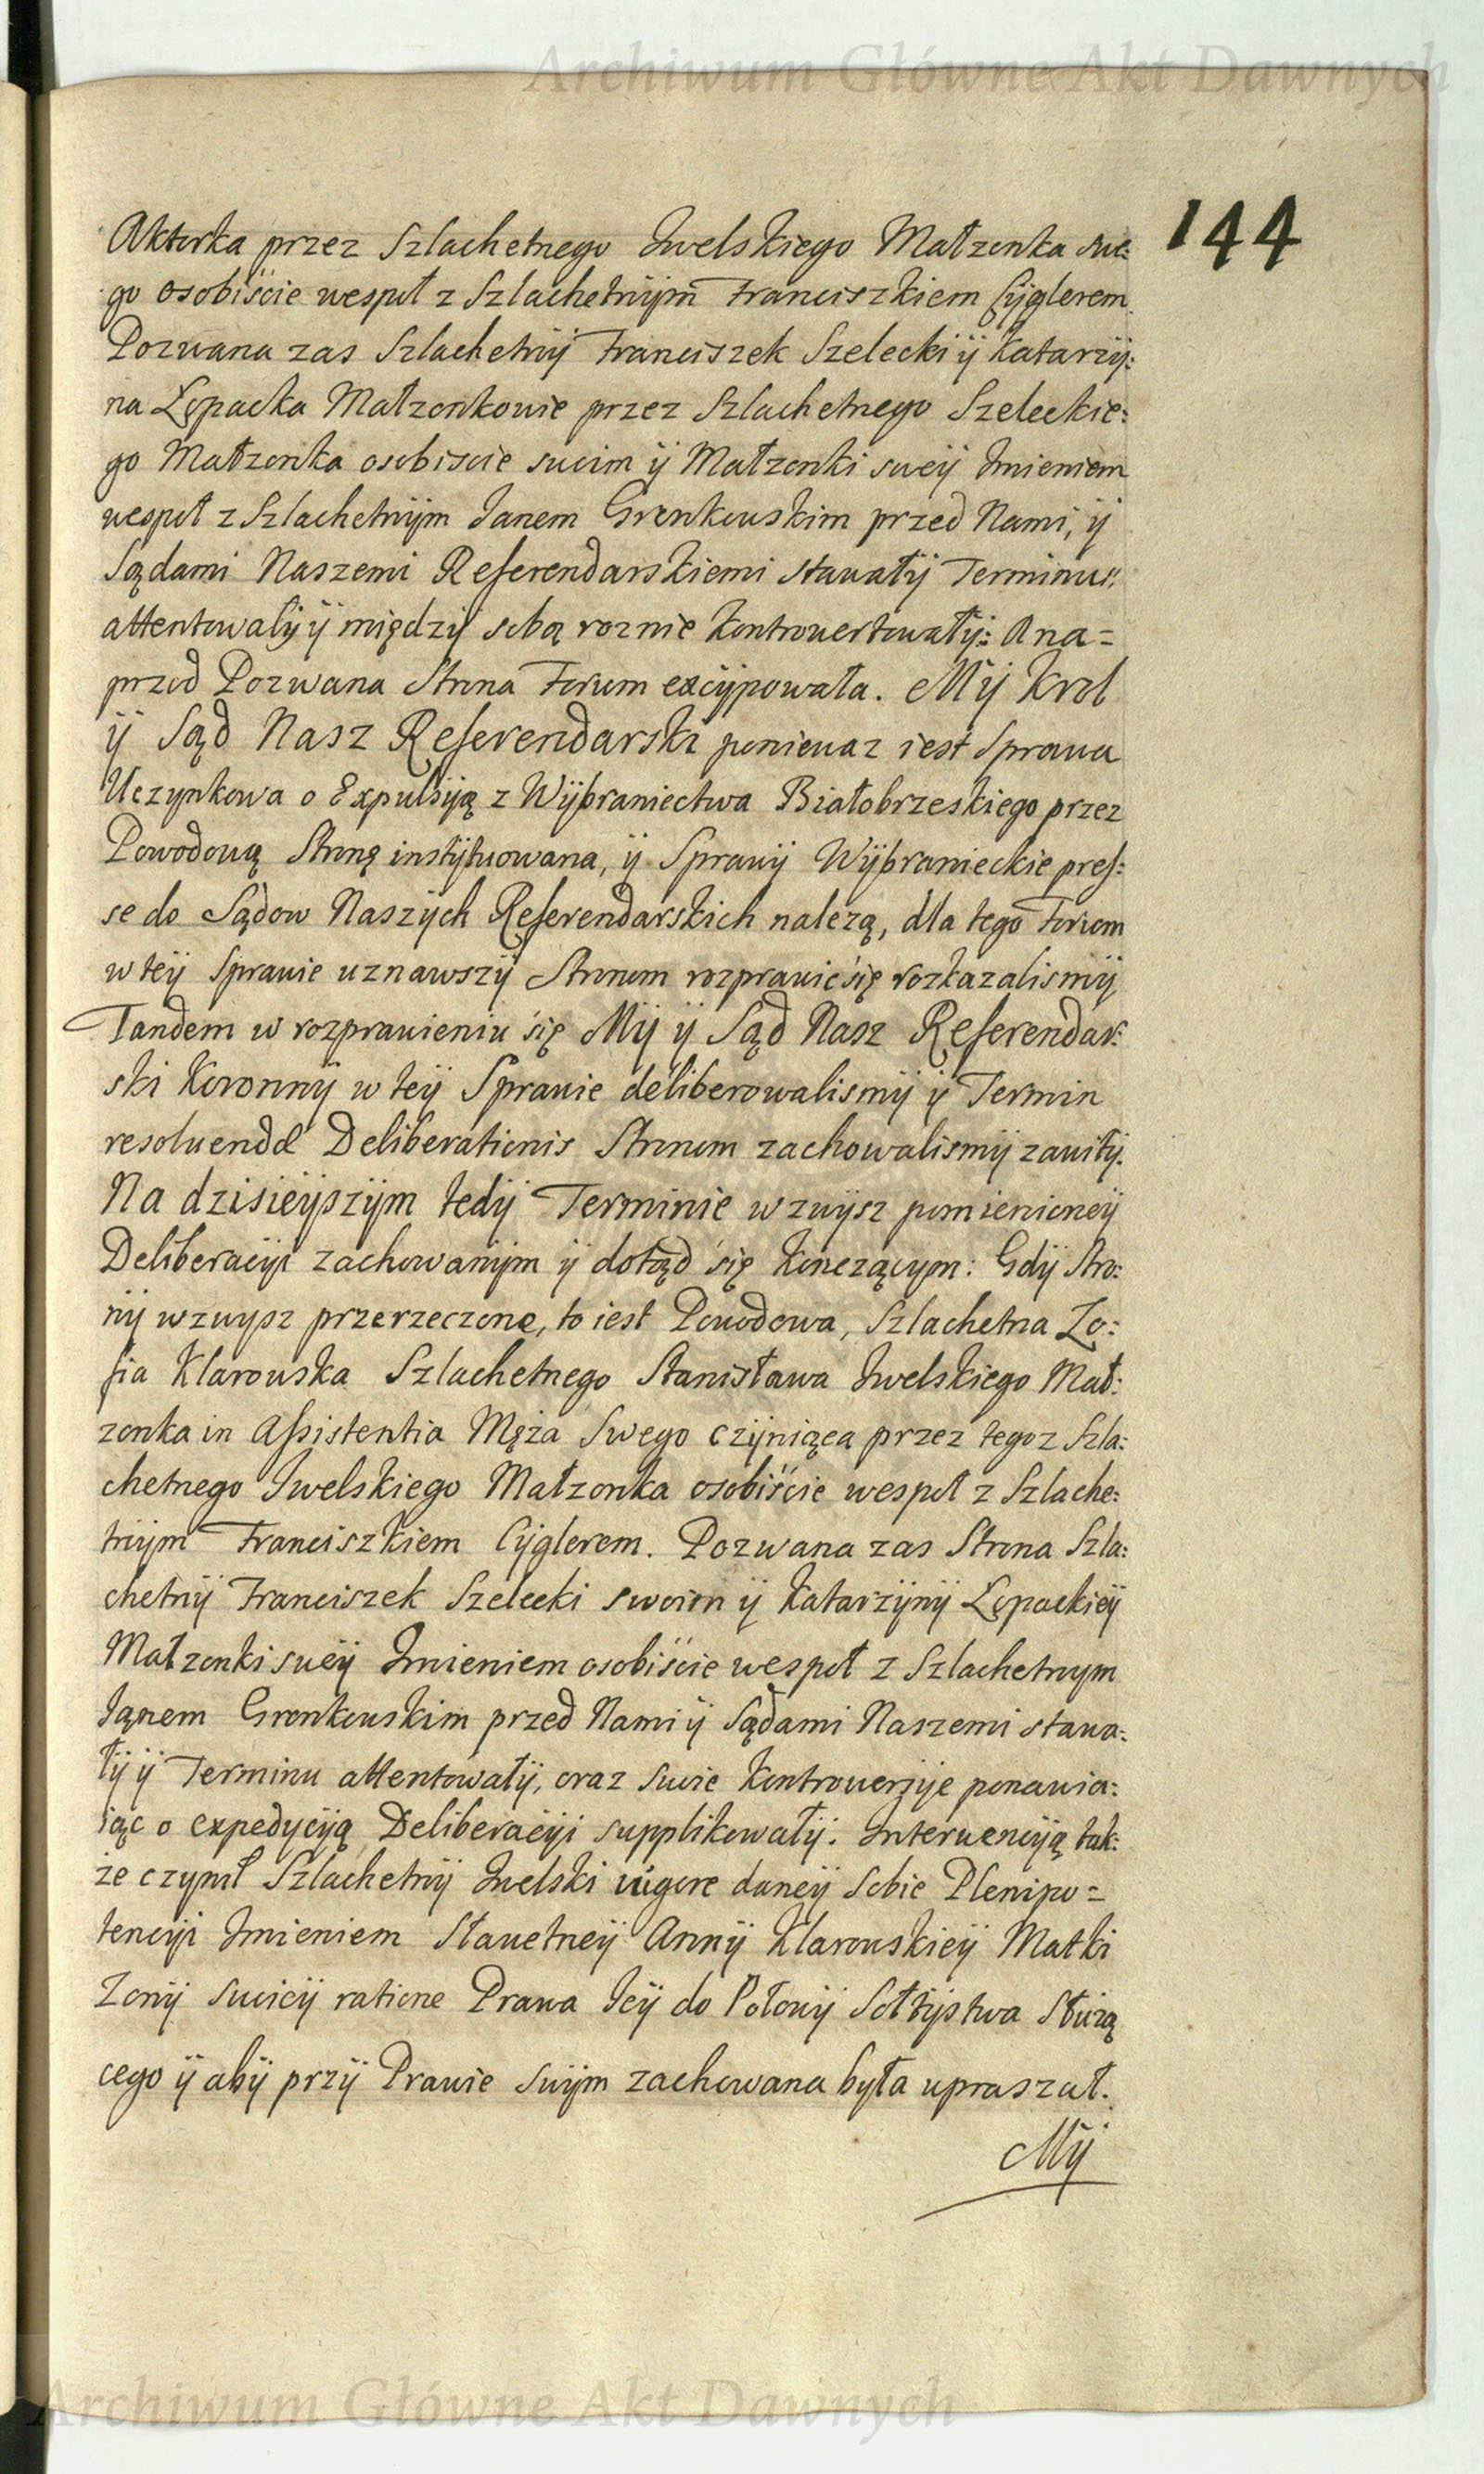 Archiwum Główne Akt Dawnych
144
Aktorka przez Szlachetnego Iwelskiego Małzonka swe:
go osobiście wespoł z Szlachetnÿm Franciszkiem Cÿglerem
Pozwana zas Szlachetnÿ Franciszek Szelecki ÿ Katarzÿ:
na Łępacka Małzonkowie przez Szlachetnego Szeleckie:
go Małzonka osobiscie swoim ÿ Małzonki sweÿ Imieniem
wespoł z Szlachetnÿm Janem Gronkowskim przed Nami, ÿ
Sądami Naszemi Referendarskiemi stawałÿ Terminu
attentowalÿ ÿ międzÿ sobą roznie kontrowertowałÿ: A na=
przod Pozwana Strona Forum excÿpowała. Mÿ Krol
ÿ Sąd Nasz Referendarski poniewaz iest Sprawa
Uczynkowa o Expulsÿą z Wÿbraniectwa Białobrzeskiego przez
Powodową Stronę instÿtuowana, ÿ Sprawÿ Wÿbranieckie pres:
se do Sądow Naszÿch Referendarskich nalezą, dla tego Forum
w teÿ Sprawie uznawszÿ Stronom rozprawić się rozkazalismÿ
Tandem w rozprawieniu się Mÿ ÿ Sąd Nasz Referendar:
ski Koronnÿ w teÿ Sprawie deliberowalismÿ ÿ Termin
resoluendæ Deliberationis Stronom zachowalismÿ zawitÿ.
Na dzisieÿszÿm tedÿ Terminie wzwÿsz pomienioneÿ
Deliberacÿi zachowanÿm ÿ dotąd się konczącym: Gdÿ Stro:
nÿ wzwysz przerzeczone, to iest Powodowa, Szlachetna Zo:
fia Klarowska Szlachetnego Stanisława Iwelskiego Mał:
zonka in Assistentia Męża Swego czÿniąca przez tegoz Szla:
chetnego Iwelskiego Małzonka osobiście wespoł z Szlache:
tnÿm Franciszkiem Cÿglerem. Pozwana zas Strona Szla:
chetnÿ Franciszek Szelecki swoim ÿ Katarzÿnÿ Łępackieÿ
Małzonki sweÿ Imieniem osobiście wespoł z Szlachetnym
Janem Gronkowskim przed Nami ÿ Sądami Naszemi stawa:
łÿ ÿ Terminu attentowałÿ, oraz swoie kontrowersÿe ponawia:
iąc o expedycÿą Deliberacÿi supplikowałÿ. Interwencÿą tak:
że czynił Szlachetnÿ Iwelski vigore daneÿ sobie Plenipo=
tencÿi Imieniem Sławetneÿ Annÿ Klarowskieÿ Matki
Zonÿ swoieÿ ratione Prawa Ieÿ do Połowÿ Sołtÿstwa służą
cego ÿ abÿ przÿ Prawie swÿm zachowana była upraszał.
Mÿ
Archiwum Główne Akt Dawnych